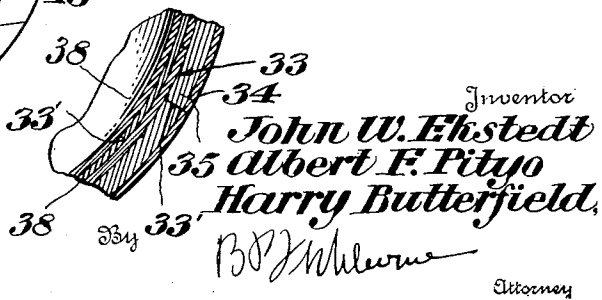 38
33
34
33'
35
38
33'
Inventor
John W. Ekstedt
Albert F. Pityo
Harry Butterfield,
By
Attorney